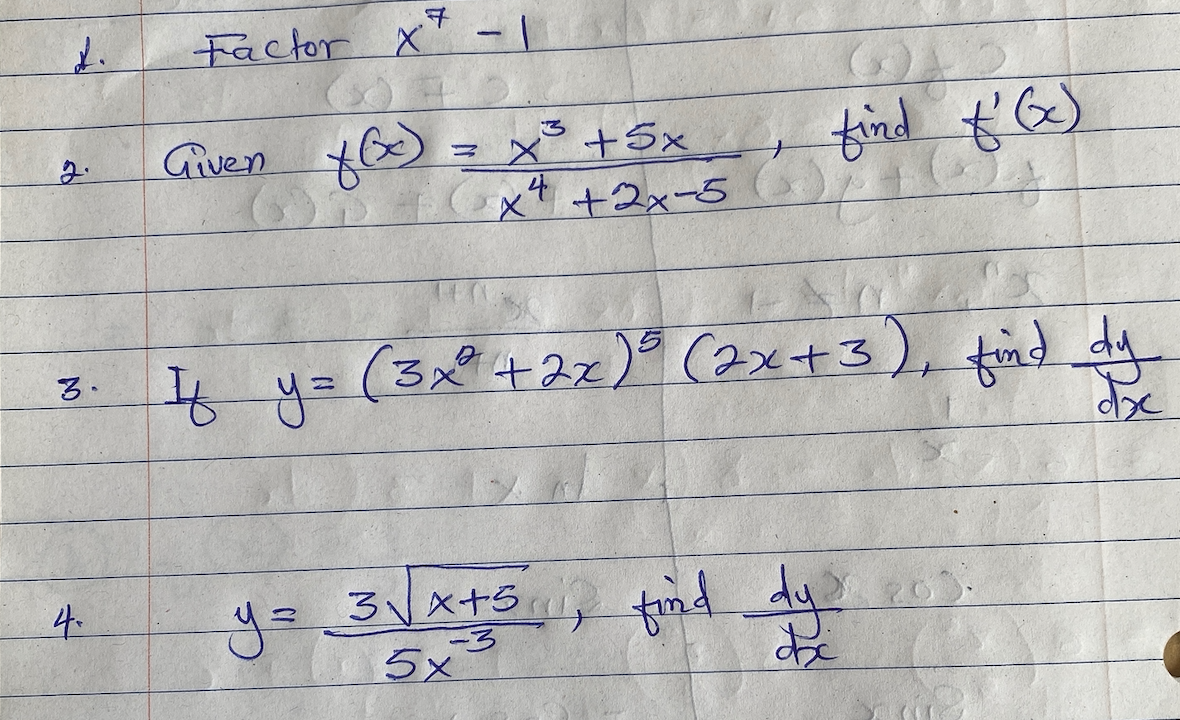 1. Factor x⁷ - 1
2. Given f(x) = (x³ + 5x)/(x⁴ + 2x - 5), find f'(x)
3. If y = (3x² + 2x)⁵ (2x + 3), find dy/dx
4. y = 3√(x+5)/(5x⁻³), find dy/dx